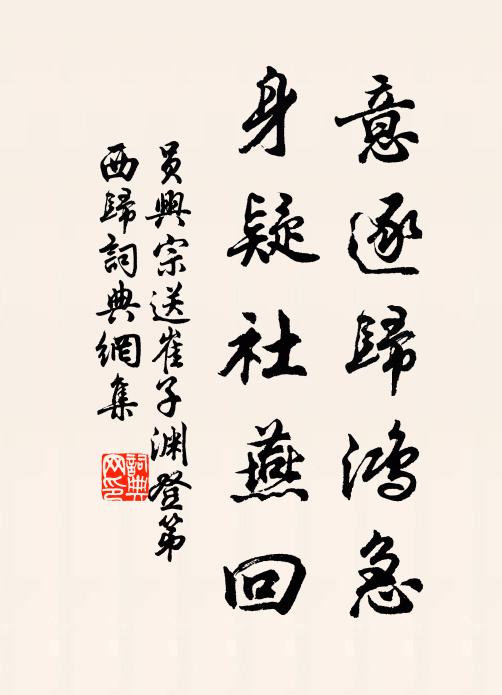 意逐歸鴻急
身疑社燕回
員興宗送崔子渊登第
西歸詞典網集
詞典网印